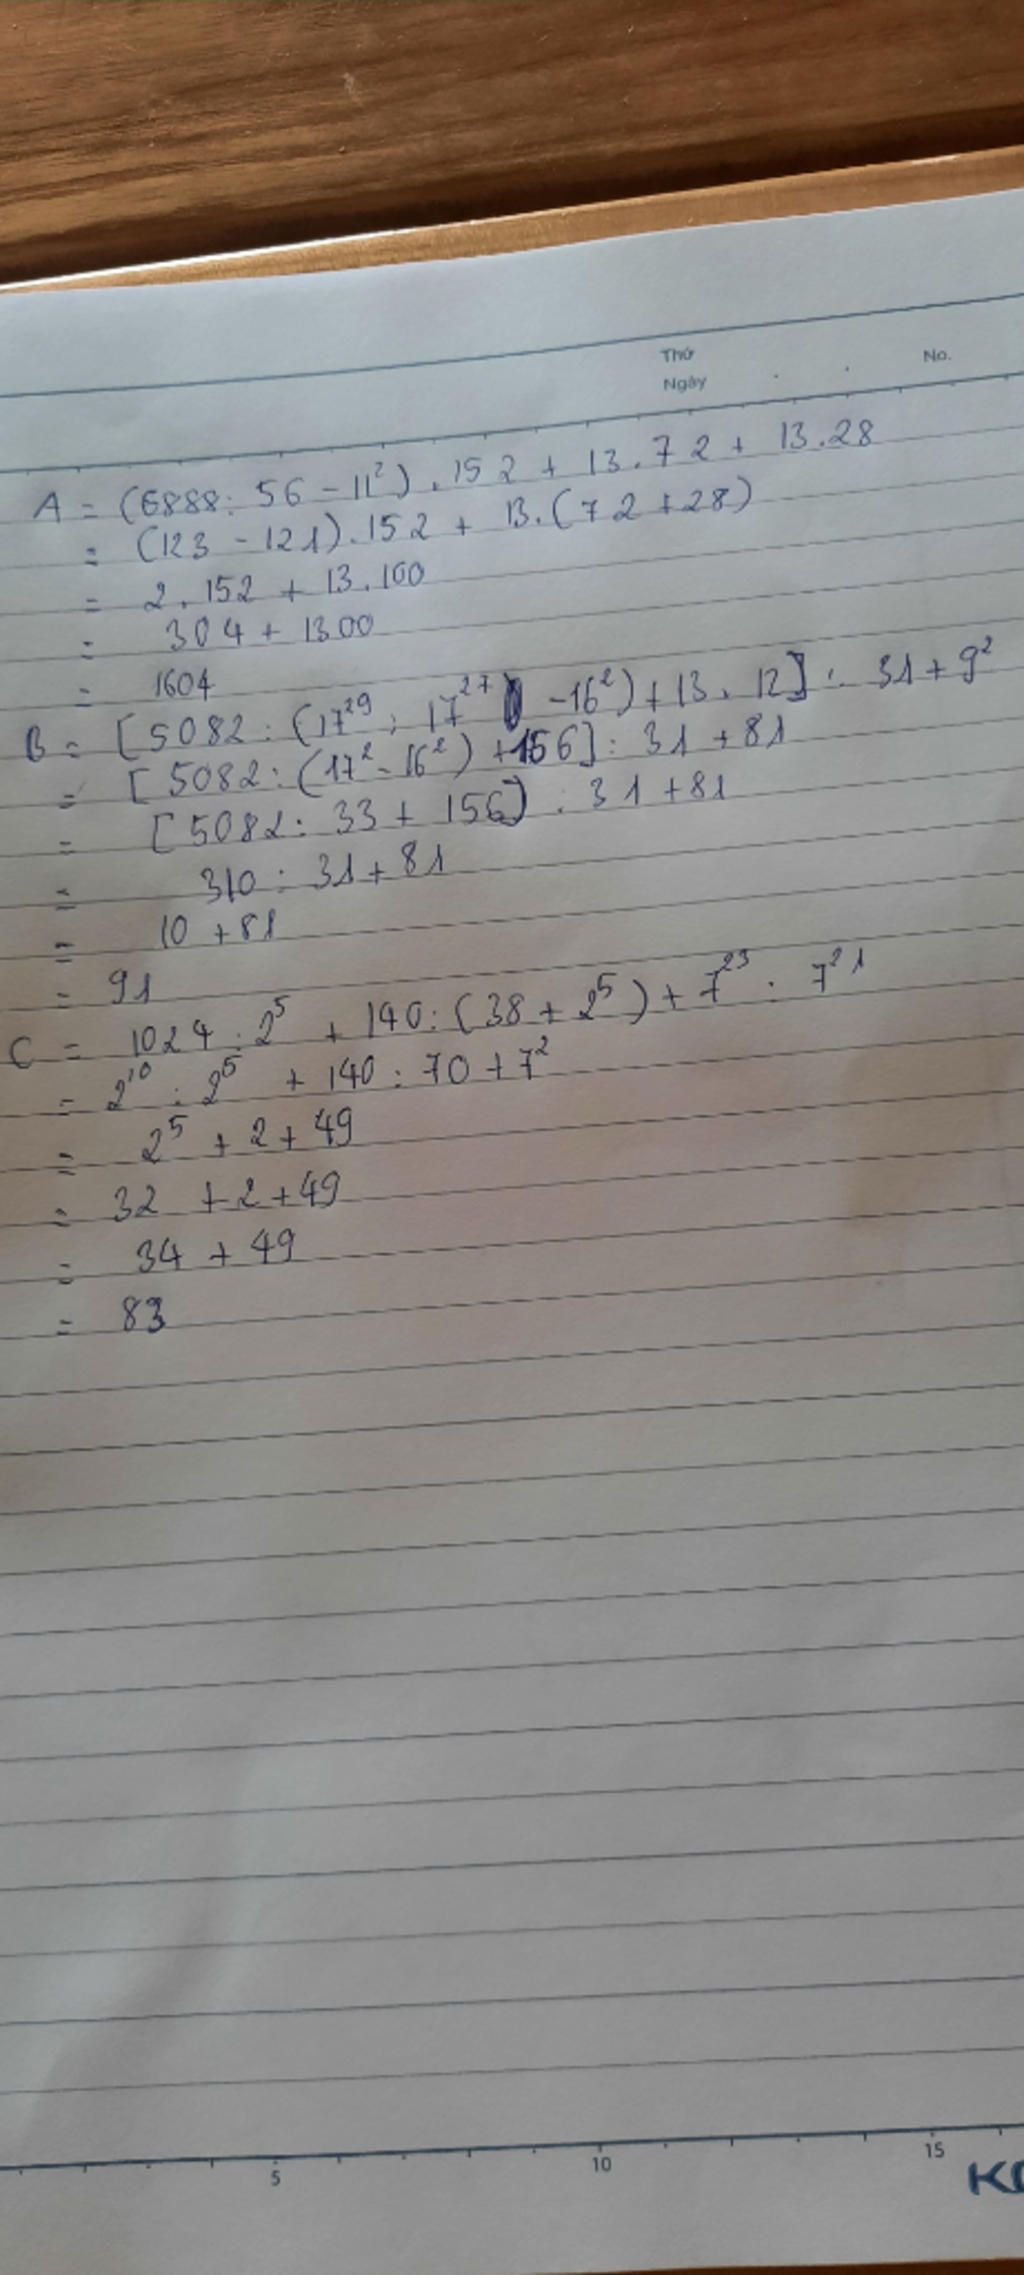 Thứ
Ngày
No.
A = (6888 : 56 - 11²) . 152 + 13 . 72 + 13 . 28
= (123 - 121) . 152 + 13 . (72 + 28)
= 2 . 152 + 13 . 100
= 304 + 1300
= 1604
B = [5082 : (17²⁹ : 17²⁷ - 16²) + 13 . 12] : 31 + 9²
= [5082 : (17² - 16²) + 156] : 31 + 81
= [5082 : 33 + 156] : 31 + 81
= 310 : 31 + 81
= 10 + 81
= 91
C = 1024 : 2⁵ + 140 : (38 + 2⁵) + 7²³ : 7²¹
= 2¹⁰ : 2⁵ + 140 : 70 + 7²
= 2⁵ + 2 + 49
= 32 + 2 + 49
= 34 + 49
= 83
5 10 15